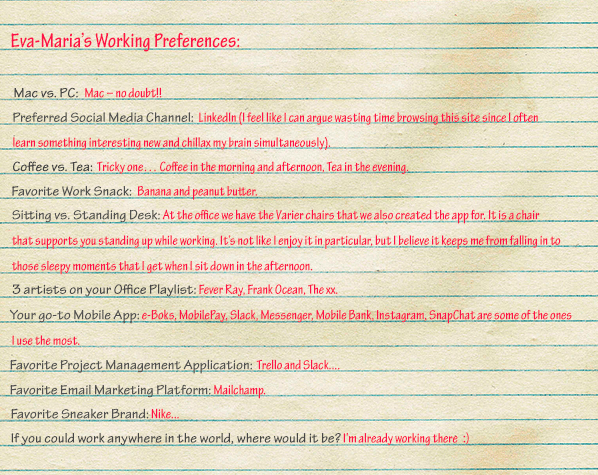 Eva-Maria's Working Preferences:
Mac vs. PC: Mac – no doubt!!
Preferred Social Media Channel: LinkedIn (I feel like I can argue wasting time browsing this site since I often
learn something interesting new and chillax my brain simultaneously).
Coffee vs. Tea: Tricky one... Coffee in the morning and afternoon, Tea in the evening.
Favorite Work Snack: Banana and peanut butter.
Sitting vs. Standing Desk: At the office we have the Varier chairs that we also created the app for. It is a chair
that supports you standing up while working. It's not like I enjoy it in particular, but I believe it keeps me from falling in to
those sleepy moments that I get when I sit down in the afternoon.
3 artists on your Office Playlist: Fever Ray, Frank Ocean, The xx.
Your go-to Mobile App: e-Boks, MobilePay, Slack, Messenger, Mobile Bank, Instagram, SnapChat are some of the ones
I use the most.
Favorite Project Management Application: Trello and Slack....
Favorite Email Marketing Platform: Mailchamp.
Favorite Sneaker Brand: Nike...
If you could work anywhere in the world, where would it be? I'm already working there :)